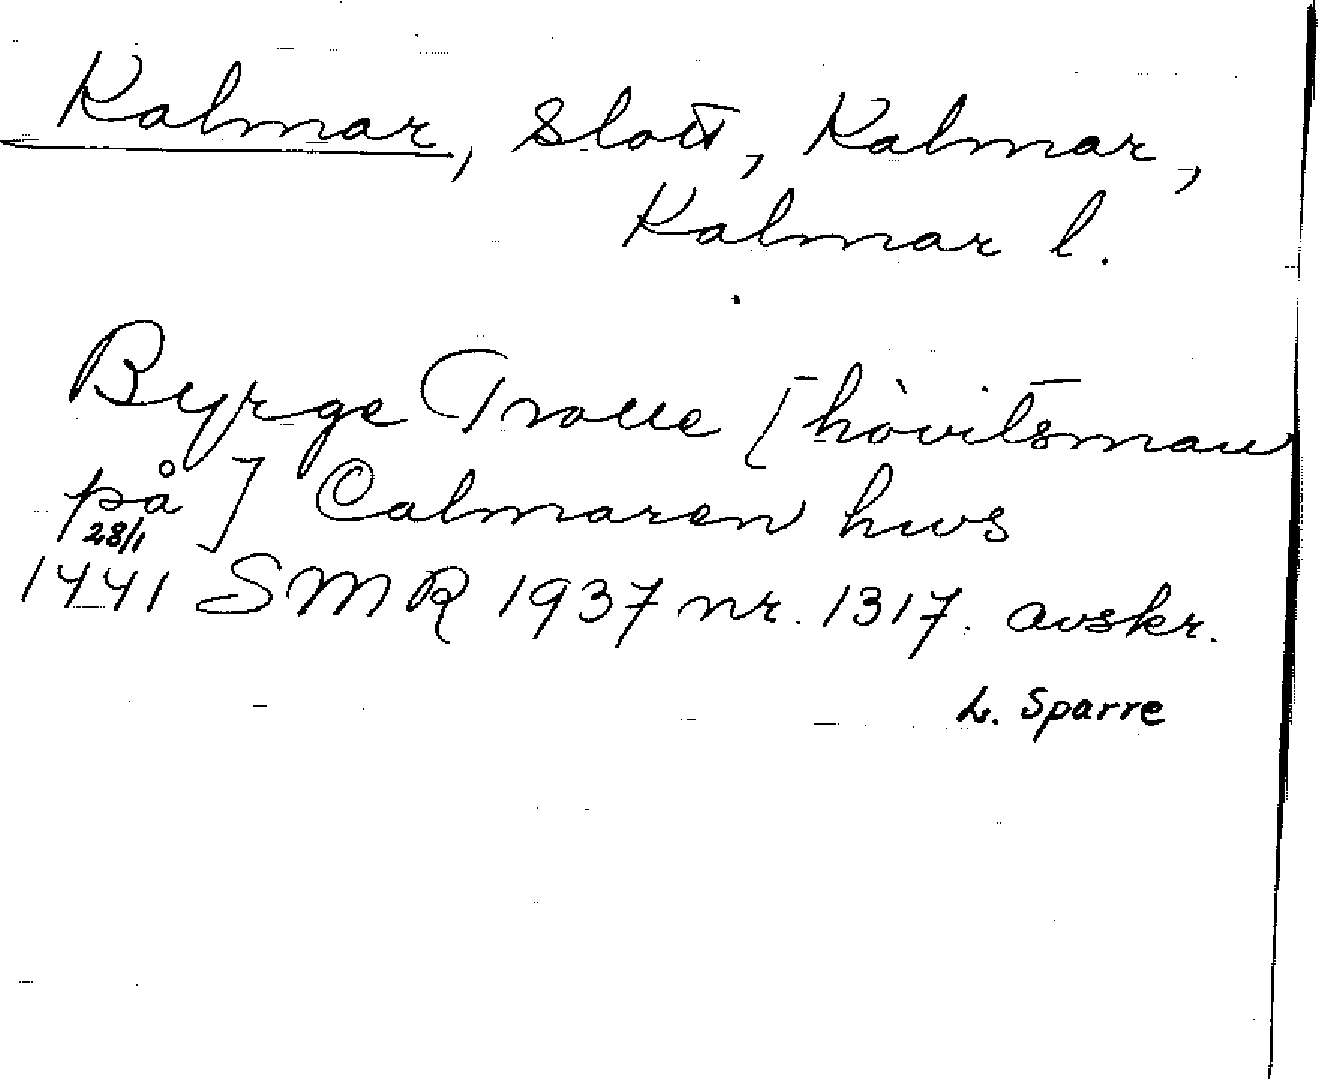 Kalmar, slott, Kalmar,
Kalmar l.
Byrge Trolle [hövitsman
på] Calmaren hws
28/1
1441 SMR 1937 nr. 1317. avskr.
L. Sparre